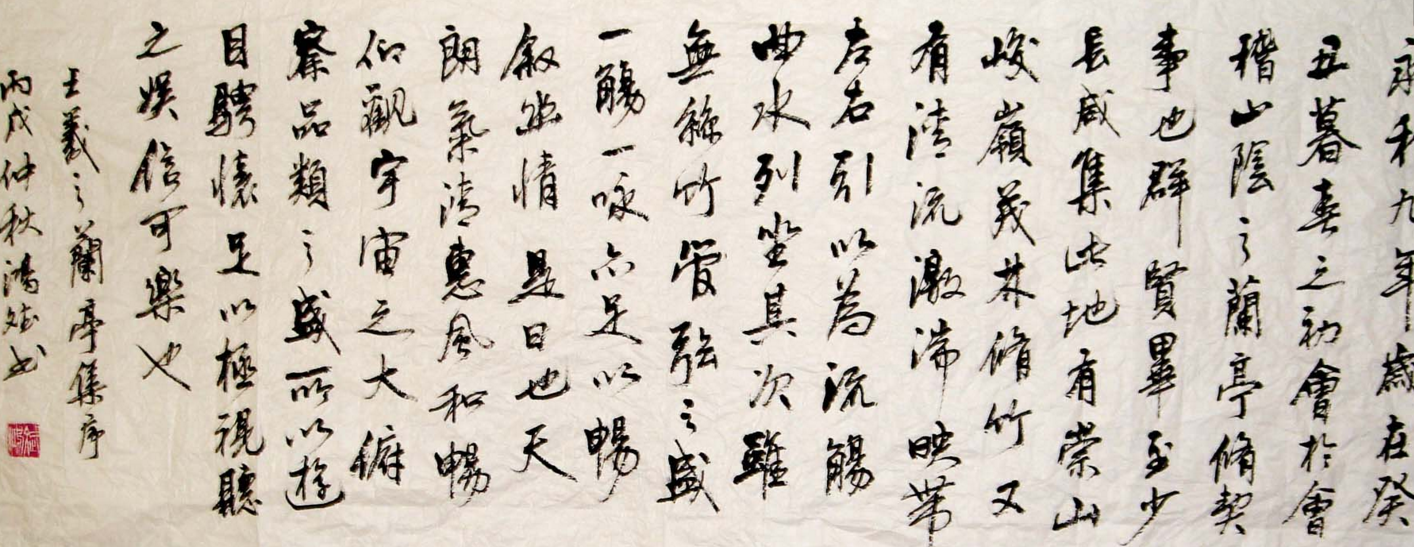 永和九年歲在癸
丑暮春之初會於會
稽山陰之蘭亭脩契
事也群賢畢至少
長咸集此地有崇山
峻嶺茂林脩竹又
有清流激湍映帶
左右引以為流觴
曲水列坐其次雖
無絲竹管弦之盛
一觴一咏亦足以暢
敘幽情是日也天
朗氣清惠風和暢
仰觀宇宙之大俯
察品類之盛所以遊
目騁懷足以極視聽
之娛信可樂也
王羲之蘭亭集序
丙戌仲秋鴻 书